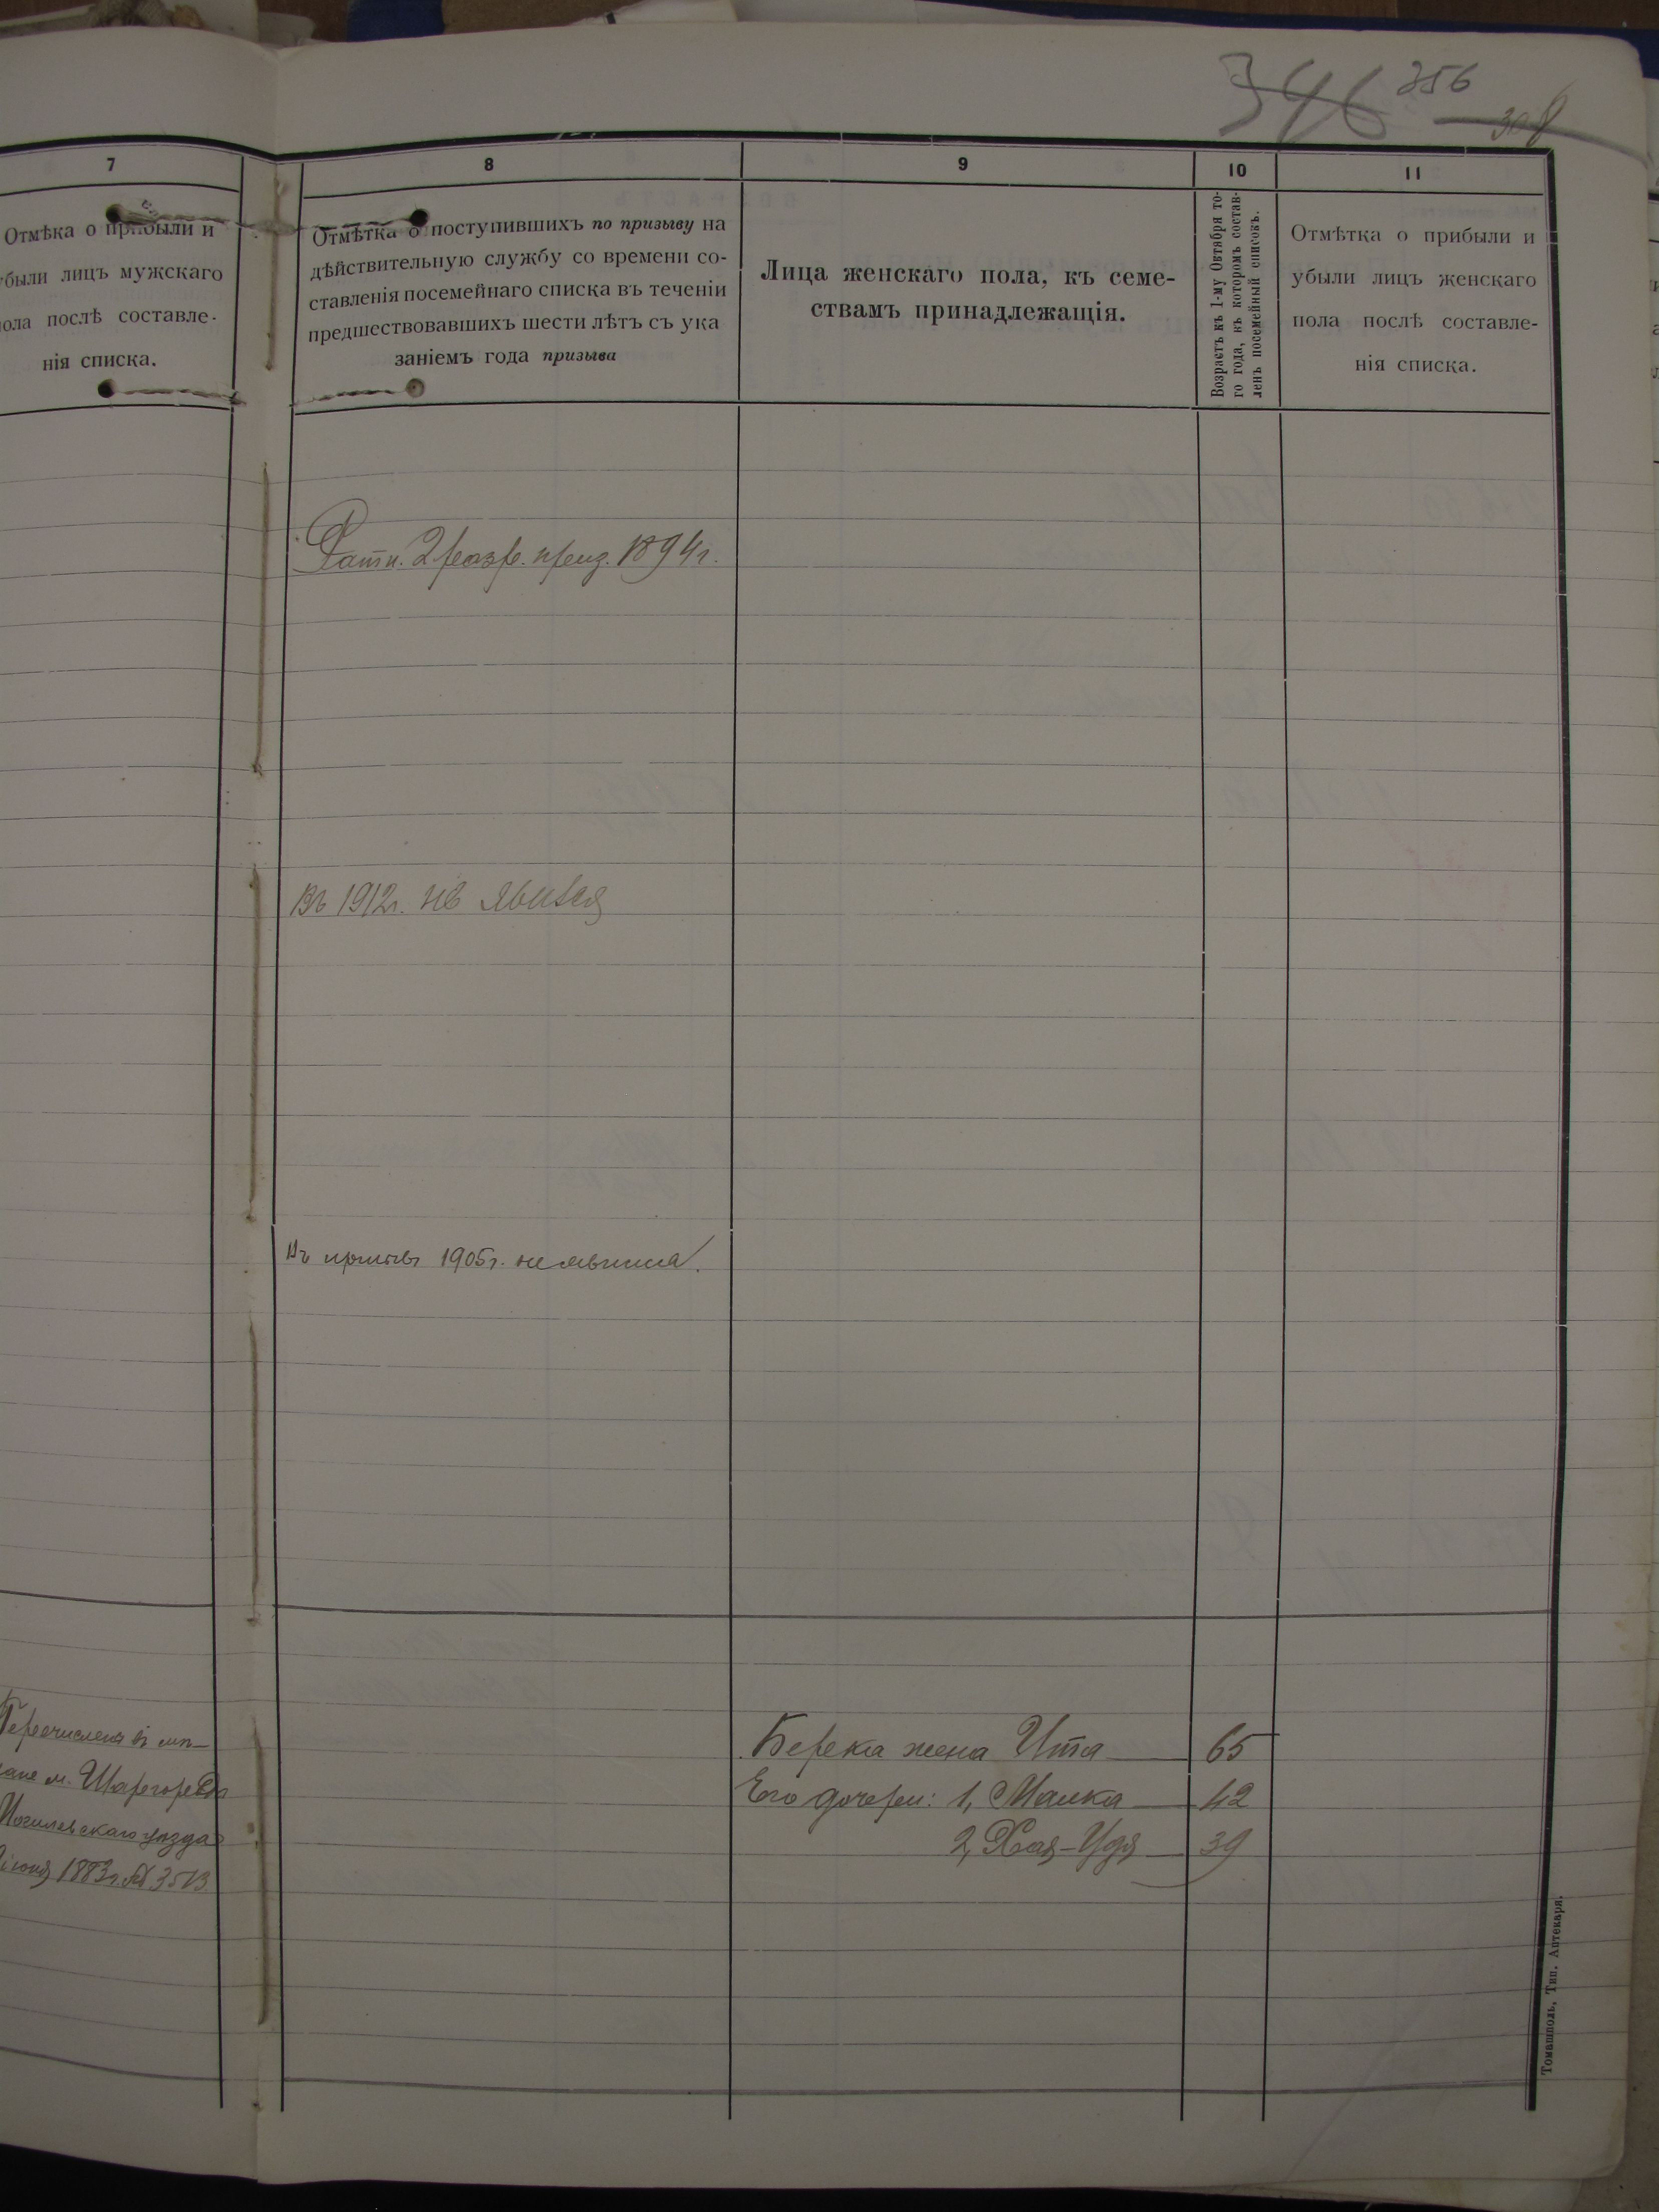 346 356
308
7
8
9
10
11
Отмѣка о прибыли и
убыли лицъ мужскаго
пола послѣ составле-
нія списка.
Отмѣтка о поступившихъ по призыву на
дѣйствительную службу со времени со-
ставленія посемейнаго списка въ теченіи
предшествовавшихъ шести лѣтъ съ ука
заніемъ года призыва
Лица женскаго пола, къ семе-
ствамъ принадлежащія.
Возрастъ къ 1-му Октября то-
го года, къ которомъ состав-
ленъ посемейный списокъ.
Отмѣтка о прибыли и
убыли лицъ женскаго
пола послѣ составле-
нія списка.
Ратн. 2 разр. приз. 1894 г.
Въ 1912 г. не явился
Въ призывъ 1905 г. не явился.
Перечисленъ въ мѣ-
щане м. Шаргорода
Могилевскаго уѣзда
іюня 1883 г. № 3513
Берека жена Ита 65
Его дочери: 1, Малка 42
2, Хая-Удя 39
Томашполь, Тип. Аптекаря.